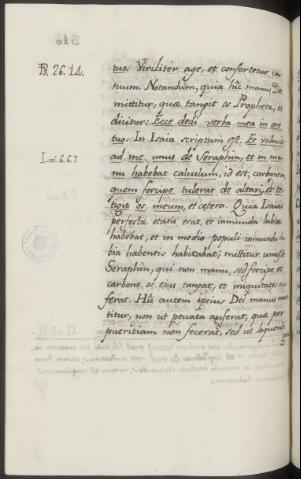 Ps. 26. 14.
tuo. Viriliter age, et confortetur cor
tuum. Notandum, quia hîc manus Dei
mittitur, quæ tangit os Prophetæ, et
dicitur: Ecce dedi verba mea in ore
tuo. In Isaia scriptum est: Et volavit
Isai. 6. 6. 7.
ad me unus de Seraphin, et in ma-
nu habebat calculum, id est, carbonem,
quem forcipe tulerat de altari, et te-
tigit os meum, et cætera. Quia Isaias
perfectæ etatis erat, et inmunda labia
habebat, et in medio populi inmunda la-
bia habentis habitabat; mittitur unus de
Seraphin, qui non manu, sed forcipe, et
carbone os ejus tangat, et iniquitates au-
ferat. Hîc autem ipsius Dei manus mit-
titur, non ut peccata auferat, quæ per
pueritiam non fecerat, sed ut loquendi